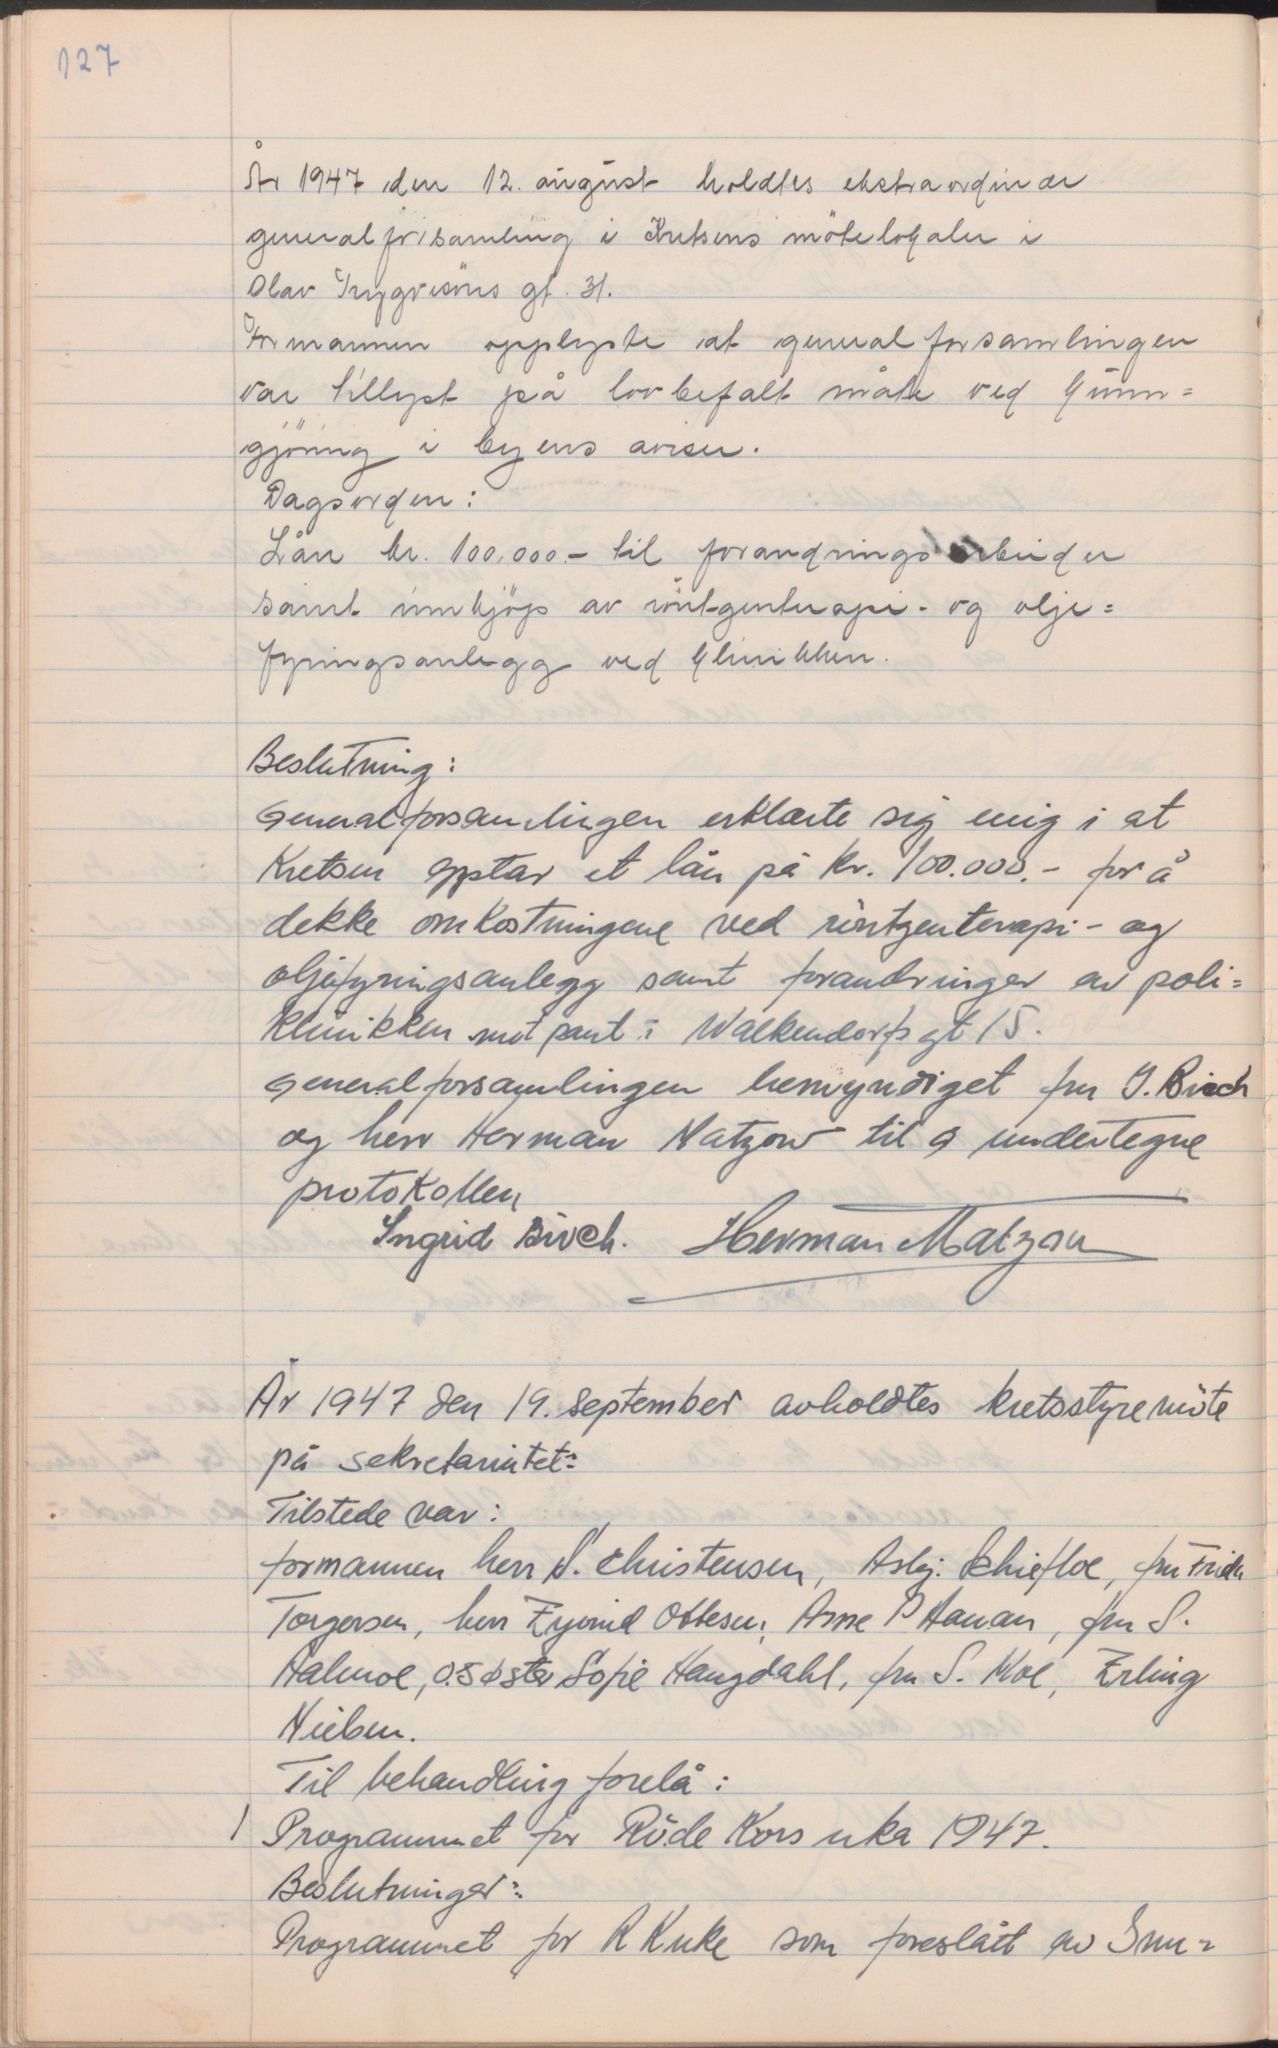 127
År 1947 den 12. august holdtes ekstraordinær
generalforsamling i Kretsens mötelokaler i
Olav Trygvesöns gt. 31.
Formannen opplyste at generalforsamlingen
var tillyst på lovbefalt måte ved kunn=
gjöring i byens aviser.
Dagsorden:
Lån kr. 100.000.- til forandringsarbeider
samt innkjöp av röntgenterapi- og olje=
fyringsanlegg ved klinikken.
Beslutning:
Generalforsamlingen erklærte sig enig i at
Kretsen opptar et lån på kr. 100.000.- for å
dekke omkostningene ved röntgenterapi- og
oljefyringsanlegg samt forandringer av poli=
klinikken mot pant i Walkendorfs gt 15.
Generalforsamlingen bemyndiget fru I. Birch
og herr Herman Matzow til å undertegne
protokollen
Ingrid Birch. Herman Matzow
År 1947 den 19. september avholdtes kretsstyremöte
på sekretariatet:
Tilstede var:
formannen herr S. Christensen, Asbj. Schiefloe, fru Frida
Torgersen, herr Eyvind Ottesen, Arne P Hanan, fru S.
Halmoe, o.søster Sofie Haugdahl, fru S. Moe, Erling
Nielsen.
Til behandling forelå:
1 Programmet for Röde Kors uka 1947.
Beslutninger:
Programmet for R K uke som foreslått av